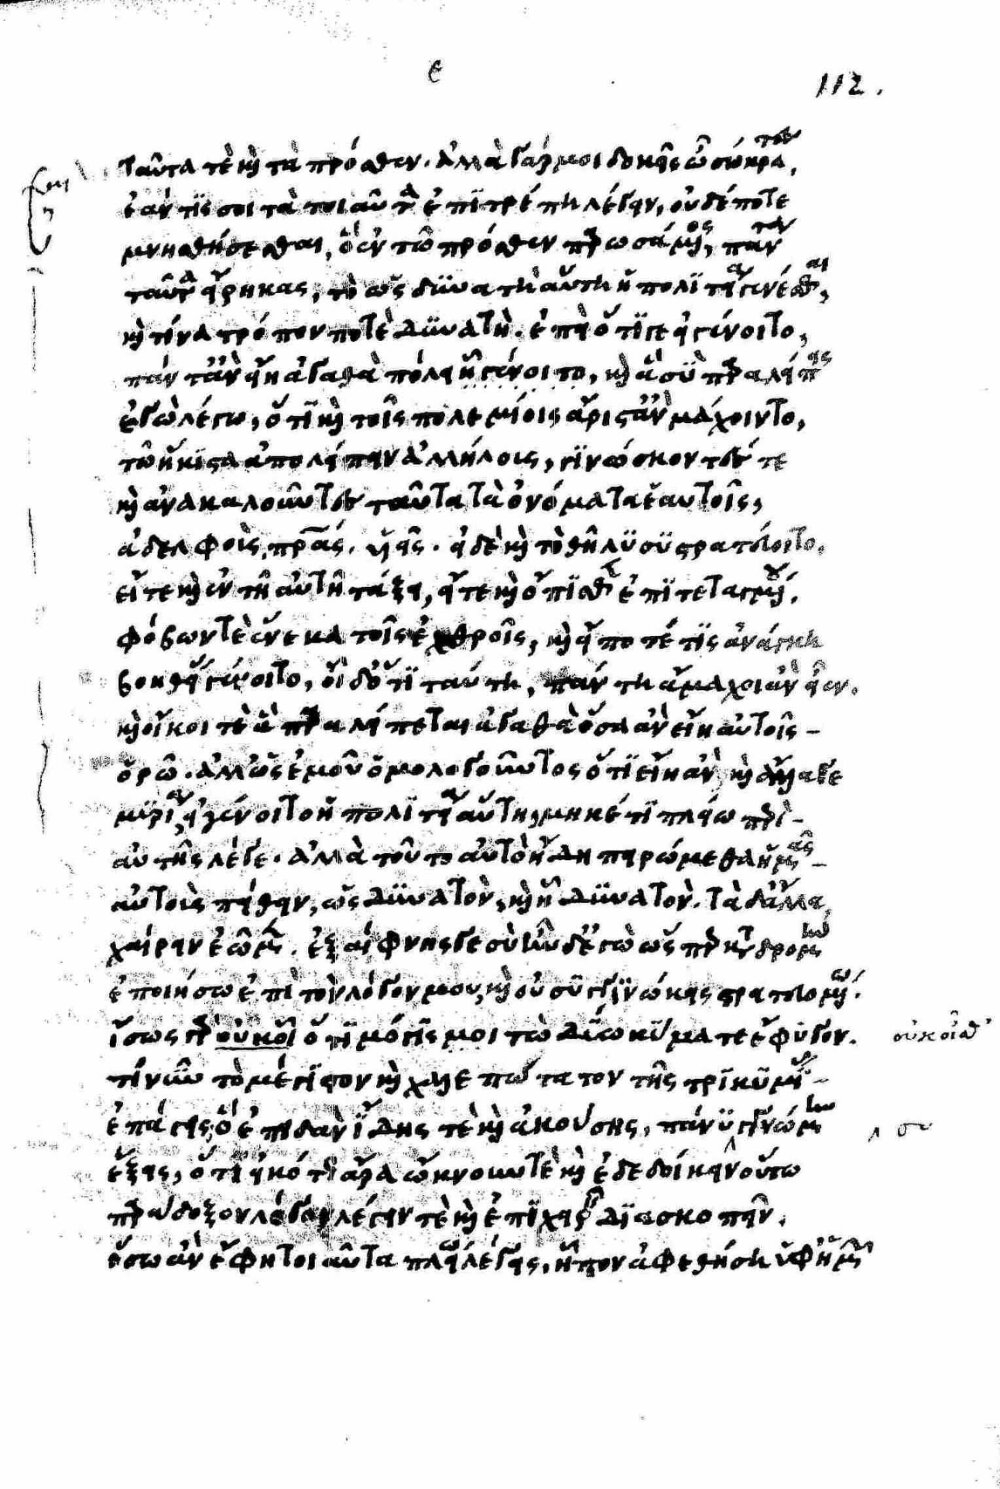 ε
112.
ταῦτά τε καὶ τὰ πρόσθεν. ἀλλὰ γάρ μοι δοκεῖς ὦ σώκρατες,
ἐάν τίς σοι τὰ τοιαῦτα ἐπιτρέπῃ λέγειν, οὐδέποτε
μνησθήσεσθαι, ὃ ἐν τῷ πρόσθεν παρωσάμενος, πάντα
ταῦτα εἴρηκας, τὸ ὡς δυνατὴ αὕτη ἡ πολιτεία γενέσθαι,
καὶ τίνα τρόπον ποτὲ δυνατή. ἐπεὶ ὅτι γε εἰ γένοιτο,
πάντ' ἂν εἴη ἀγαθὰ πόλει ᾗ γένοιτο, καὶ ἃ σὺ παραλείπεις
ἐγὼ λέγω, ὅτι καὶ τοῖς πολεμίοις ἄριστ' ἂν μάχοιντο,
τῷ ἥκιστα ἀπολείπειν ἀλλήλους, γινώσκοντές τε
καὶ ἀνακαλοῦντες ταῦτα τὰ ὀνόματα ἑαυτοῖς,
ἀδελφοὺς, πατέρας, υἱεῖς. εἰ δὲ καὶ τὸ θῆλυ συστρατεύοιτο,
εἴτε καὶ ἐν τῇ αὐτῇ τάξει, εἴτε καὶ ὄπισθεν ἐπιτεταγμένον,
φόβων τε ἕνεκα τοῖς ἐχθροῖς, καὶ εἴ ποτέ τις ἀνάγκη
βοηθείας γένοιτο, οἶδ' ὅτι ταύτῃ, πάντῃ ἄμαχοι ἂν εἶεν.
καὶ οἴκοι τε ἃ παραλείπεται ἀγαθὰ ὅσα ἂν εἴη αὐτοῖς
ὁρῶ. ἀλλ' ὡς ἐμοῦ ὁμολογοῦντος ὅτι εἴη ἂν καὶ ἄλλα γε
μυρία, εἰ γένοιτο ἡ πολιτεία αὕτη, μηκέτι πλείω περὶ
αὐτῆς λέγε. ἀλλὰ τοῦτο αὐτὸ ἤδη πειρώμεθα ἡμᾶς
αὐτοὺς πείθειν, ὡς δυνατὸν, καὶ ᾗ δυνατόν. τὰ δ' ἄλλα
χαίρειν ἐῶμεν. ἐξαίφνης γε σὺ ἦν δ' ἐγὼ ὥσπερ καταδρομὴν
ἐποιήσω ἐπὶ τὸν λόγον μου, καὶ οὐ συγγινώσκεις στρατευομένῳ.
ἴσως γὰρ οὐκ οἶσθ' ὅτι μόγις μοι τὼ δύο κύματε ἐκφυγόντι
τίνυν τὸ μέγιστον καὶ χαλεπώτατον τῆς τρικυμίας
ἐπάγεις, ὃ ἐπειδὰν ἴδῃς τε καὶ ἀκούσῃς, πάνυ γγνώμην
ἕξεις, ὅτι εἰκότως ἄρα ὤκνουν τε καὶ ἐδεδοίκειν οὕτω
παράδοξον λόγον λέγειν τε καὶ ἐπιχειρεῖν διασκοπεῖν.
ὅσῳ ἂν ἔφη τοιαῦτα πλείω λέγῃς, ἧττον ἀφεθήσῃ ὑφ' ἡμῶν
οὐκ οἶσθ'
συ